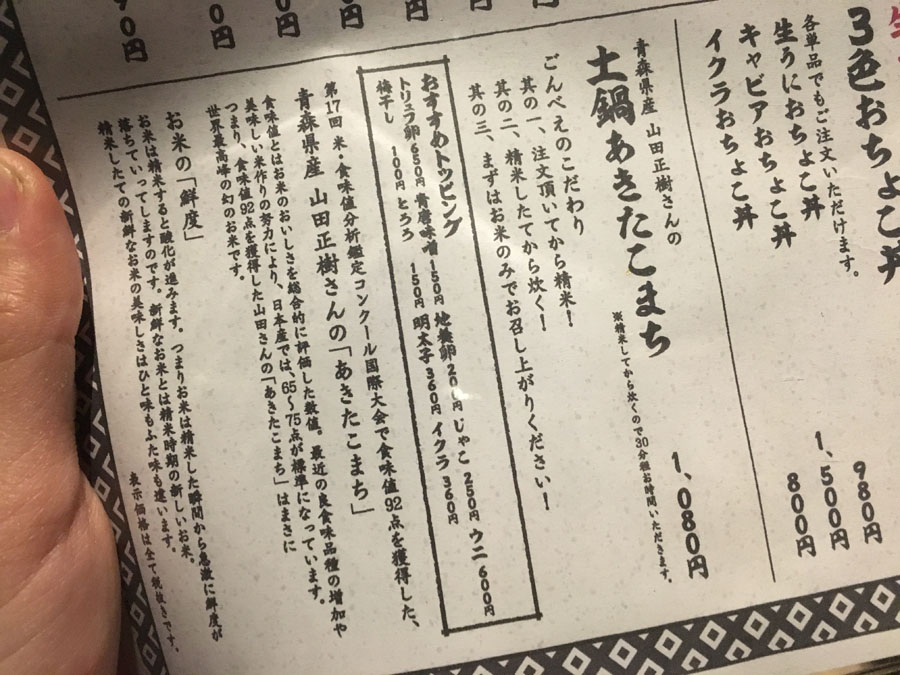 3色おちょこ丼
各単品でもご注文いただけます。
生うにおちょこ丼 980円
キャビアおちょこ丼 1,500円
イクラおちょこ丼 800円
青森県産 山田正樹さんの
土鍋あきたこまち 1,080円
※精米してから炊くので30分程お時間いただきます。
ごんべえのこだわり
其の一、注文頂いてから精米!
其の二、精米したてから炊く!
其の三、まずはお米のみでお召し上がりください!
おすすめトッピング
トリュフ卵 650円 青唐味噌 150円 地養卵 200円 じゃこ 250円 ウニ 600円
梅干し 100円 とろろ 150円 明太子 360円 イクラ 360円
第17回 米・食味値分析鑑定コンクール国際大会で食味値92点を獲得した、
青森県産 山田正樹さんの「あきたこまち」
食味値とはお米のおいしさを総合的に評価した数値。最近の良食味品種の増加や
美味しい米作りの努力により、日本産では、65～75点が標準になっています。
つまり、食味値92点を獲得した山田さんの「あきたこまち」はまさに
世界最高峰の幻のお米です。
お米の「鮮度」
お米は精米すると酸化が進みます。つまりお米は精米した瞬間から急激に鮮度が
落ちていってしますのです。新鮮なお米とは精米時期の新しいお米。
精米したての新鮮なお米の美味しさはひと味もふた味も違います。
表示価格は全て税抜きです。